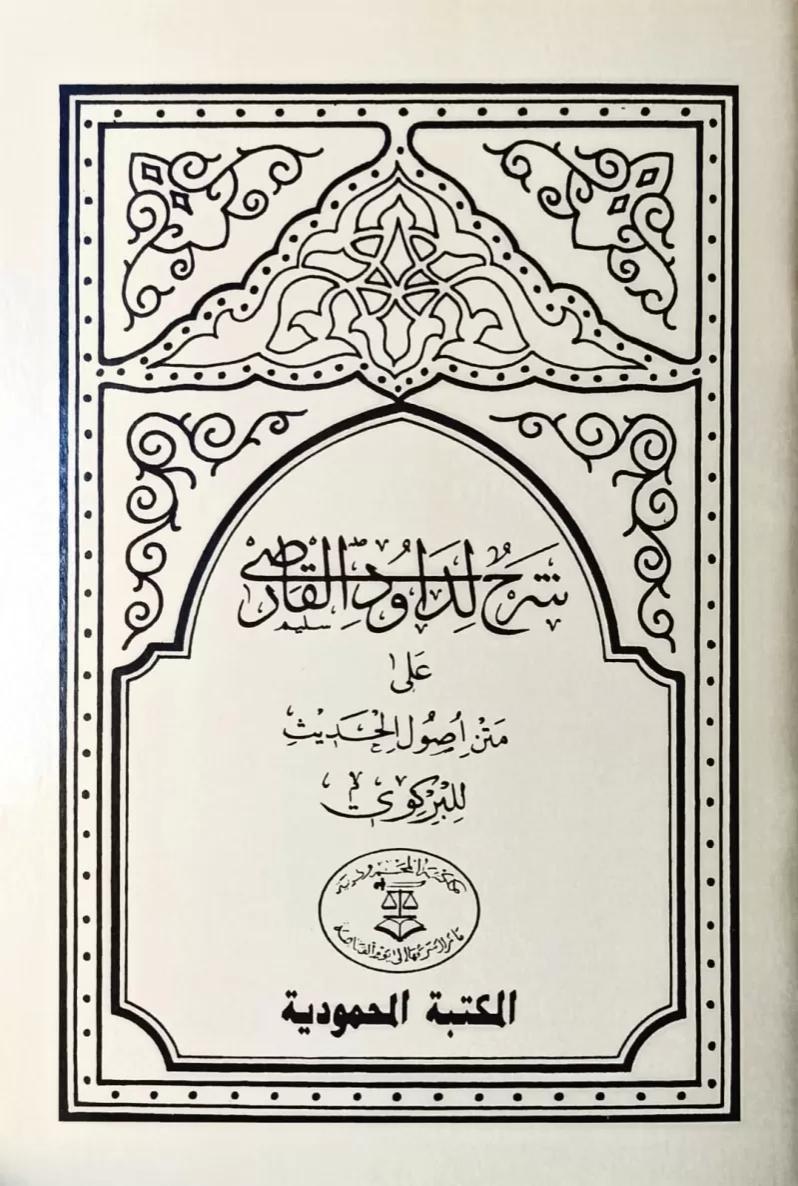 شَرْحُ لِدَاوُدِ الْقَارْصِيِّ
سليم
عَلَى
مَتْنِ اُصُولِ الْحَدِيثِ
لِلْبِرْكِوِيِّ
مكتبة المحمودية
المكتبة المحمودية